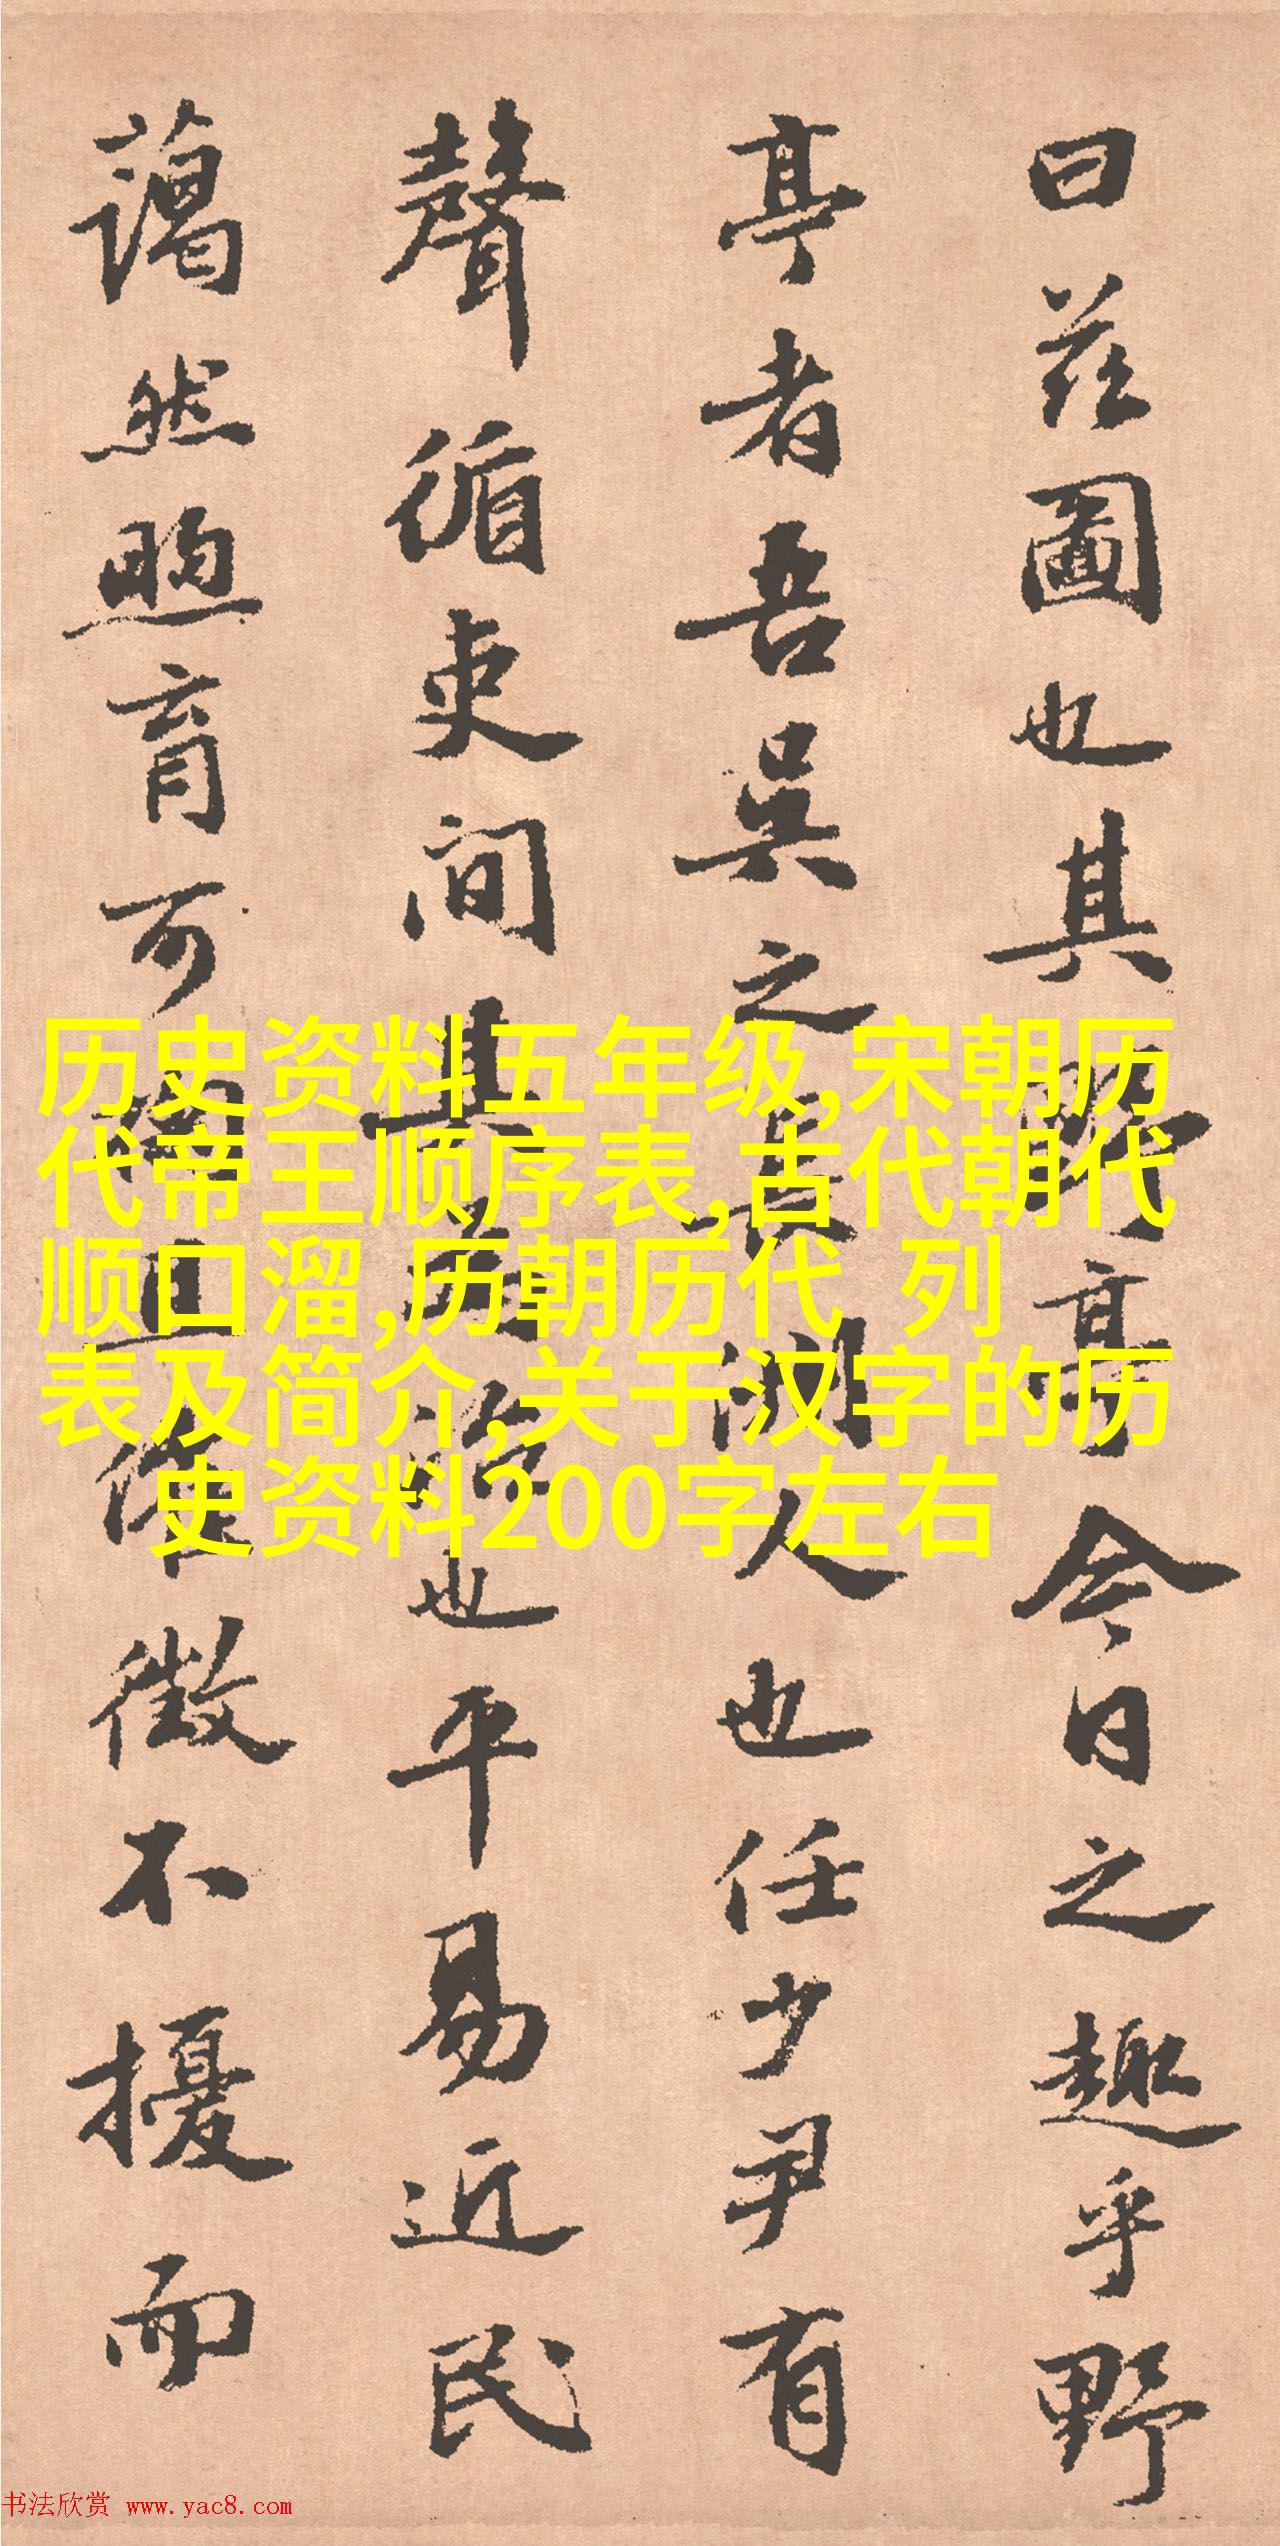 曰茲圖也其野亭今日之趣乎野
亭者吾吳之長洲人也任少尹有
聲循吏間其為治也平易近民
藹然煦育可且徵不擾而
历史资料五年级,宋朝历
代帝王顺序表,古代朝代
顺口溜,历朝历代 列
表及简介,关于汉字的历
史资料200字左右
书法欣赏 www.yac8.com